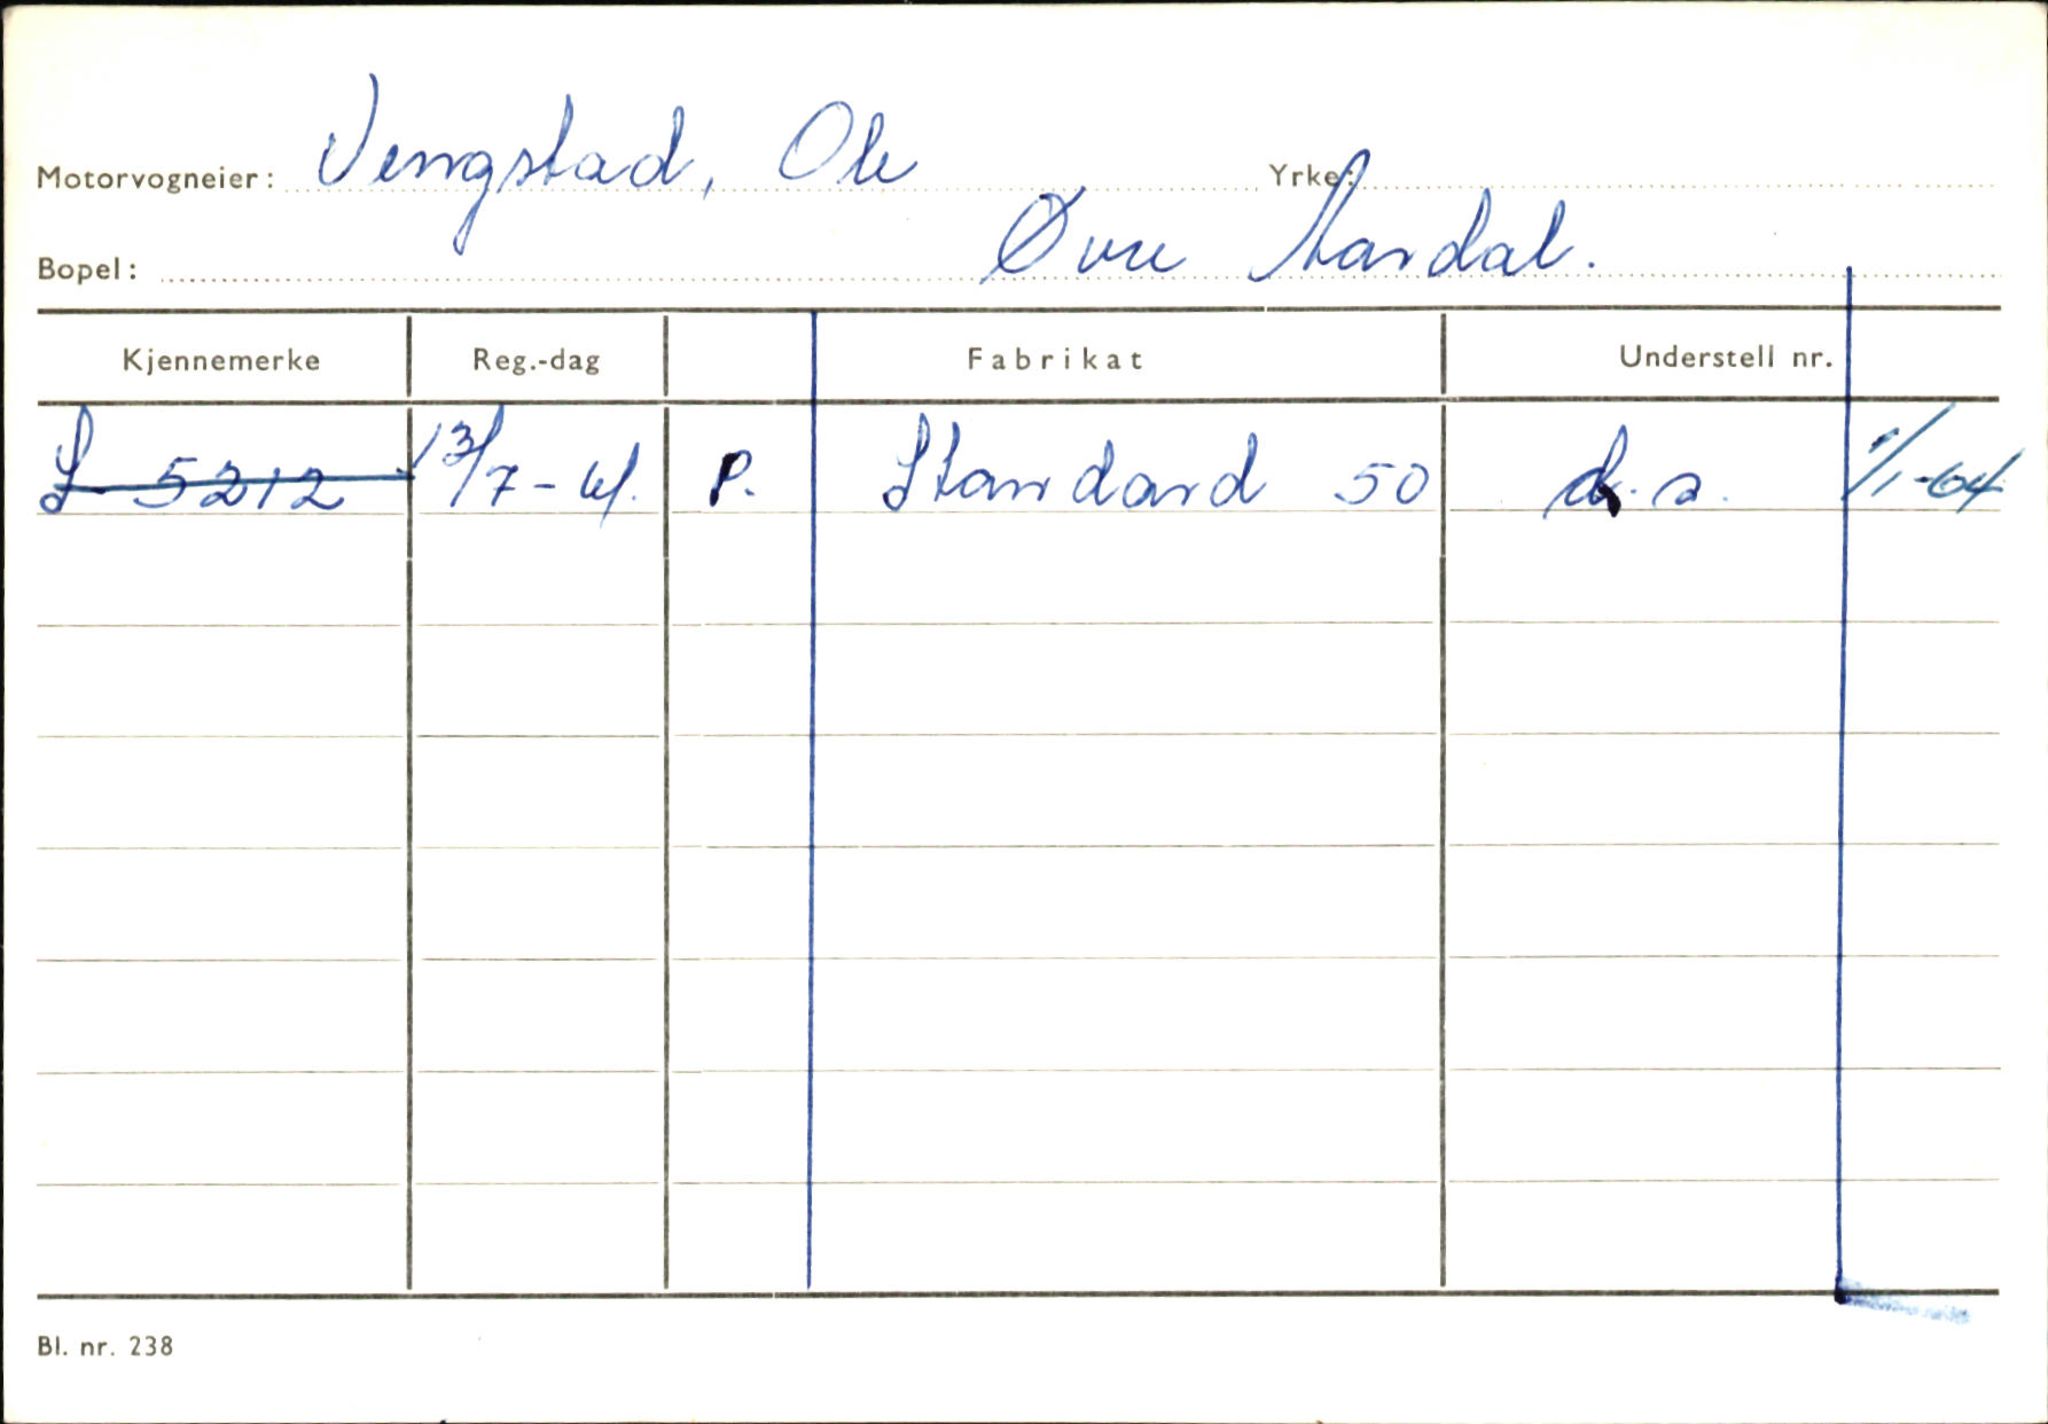 Motorvogneier: Vengstad, Ole Yrke:
Bopel: Øvre Aardal.
Kjennemerke Reg.-dag Fabrikat Understell nr.
S 5212 13/7-61. P. Standard 50 d.s. 1/1-64
Bl. nr. 238